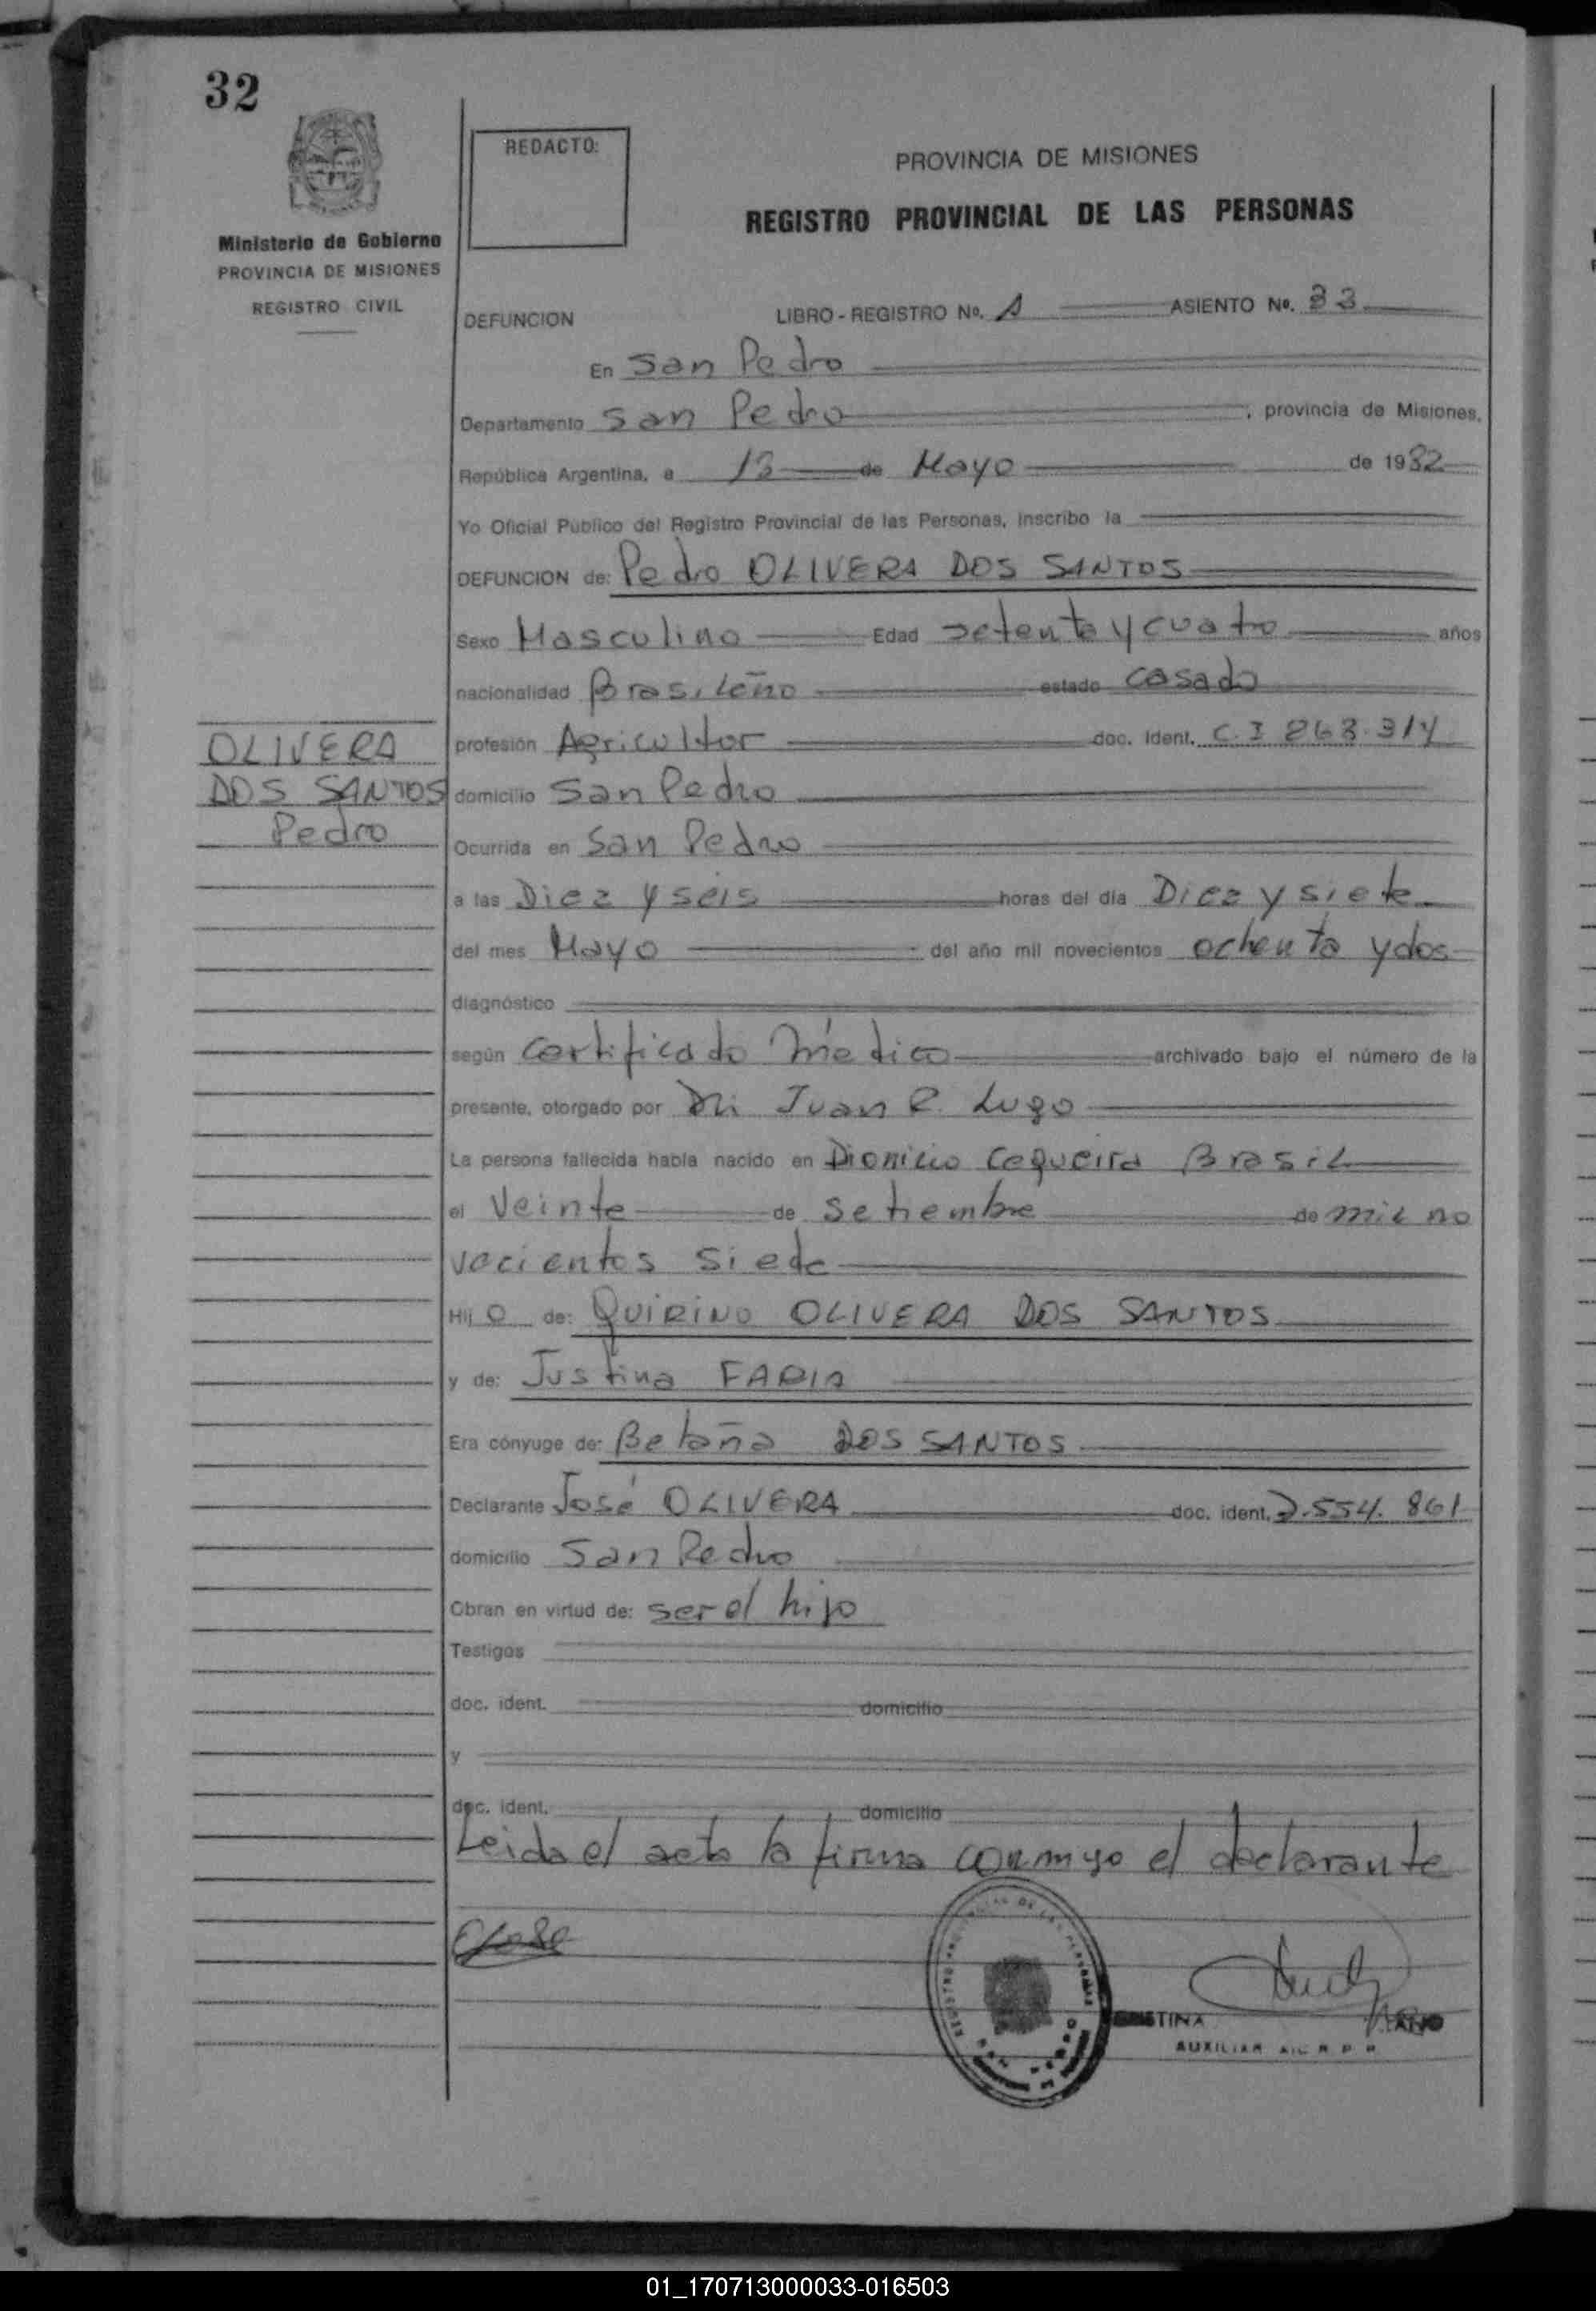 32
REDACTO:
PROVINCIA DE MISIONES
REGISTRO PROVINCIAL DE LAS PERSONAS
Ministerio de Gobierno
PROVINCIA DE MISIONES
REGISTRO CIVIL
DEFUNCION LIBRO - REGISTRO No. A ASIENTO No. 33
En San Pedro
Departamento San Pedro, provincia de Misiones,
República Argentina, a de Mayo de 1982
Yo Oficial Público del Registro Provincial de las Personas, inscribo la
DEFUNCION de: Pedro OLIVERA DOS SANTOS
Sexo Masculino Edad setenta y cuatro años
nacionalidad Brasileño estado casado
OLIVERA
DOS SANTOS
Pedro
profesión Agricultor doc. Ident. C.I 863.314
domicilio San Pedro
Ocurrida en San Pedro
a las Diez y seis horas del día Diez y siete
del mes Mayo del año mil novecientos ochenta y dos
diagnóstico
según certificado médico archivado bajo el número de la
presente, otorgado por Juan R. Lugo
La persona fallecida había nacido en Dionicio Cequeira Brasil
el Veinte de Setiembre de mil no
vecientos siete
Hij o de: QUIRINO OLIVERA DOS SANTOS
y de: Justina FARIA
Era cónyuge de: Betaña DOS SANTOS
Declarante José OLIVERA doc. ident. 7.554.861
domicilio San Pedro
Obran en virtud de: ser el hijo
Testigos
doc. ident. domicilio
y
doc. ident. domicilio
Leida el acta la firma conmigo el declarante
AUXILIAR
01_170713000033-016503